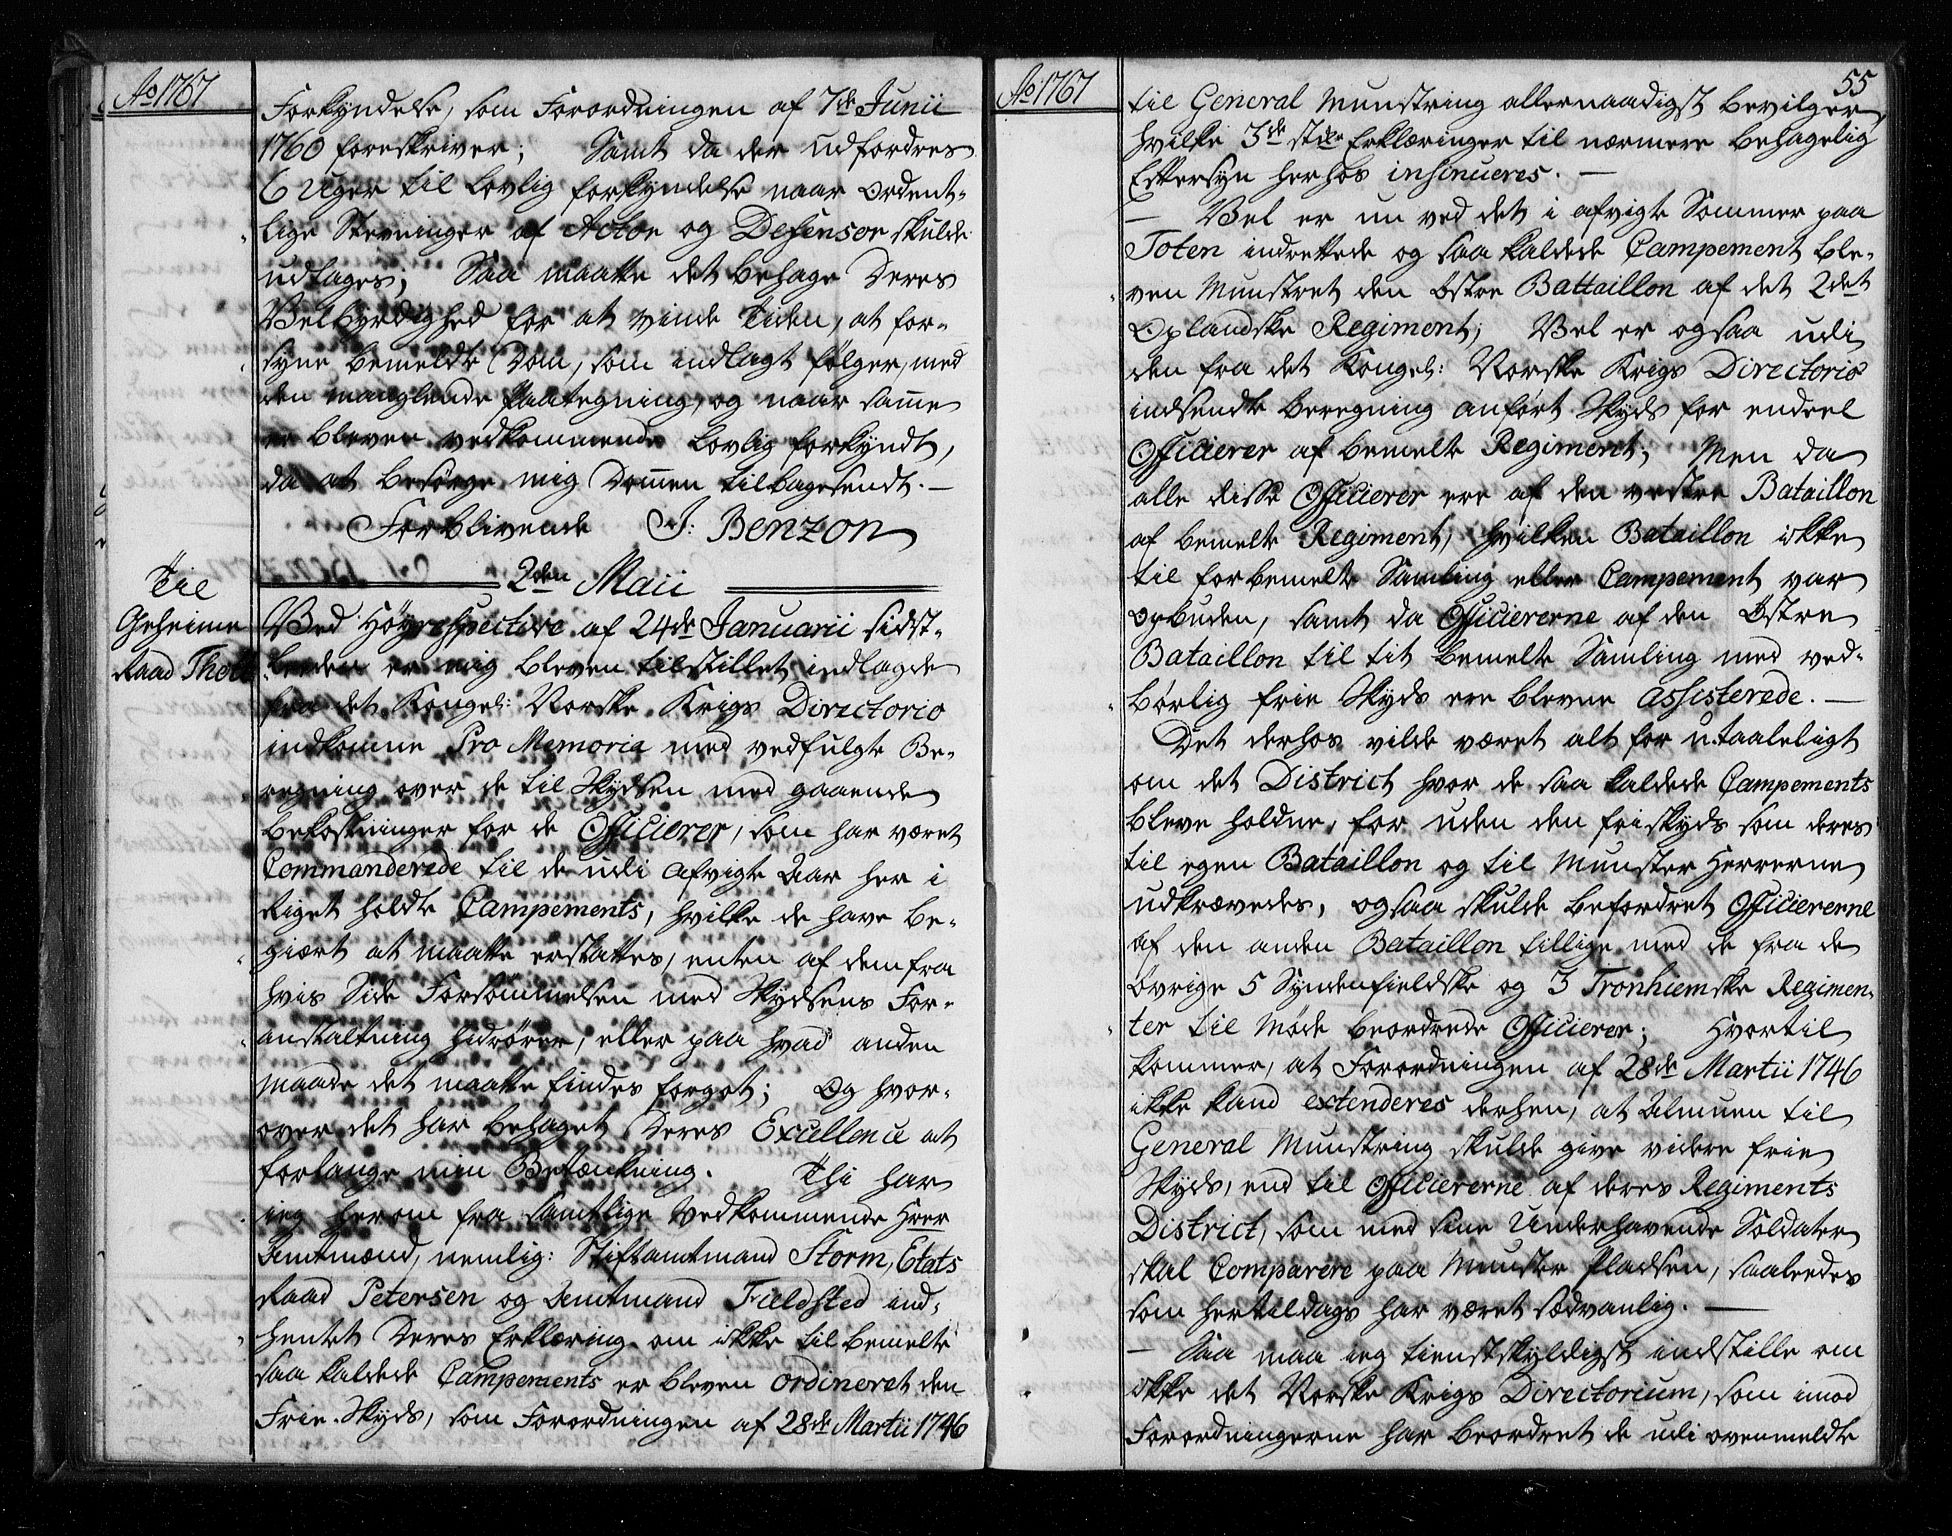 Ao 1767
Forkyndelse, som Forordningen af 7de Junii
1760 foreskriver; Samt da der udfordres
6 Uger til lovlig forkyndelse naar Ordent-
lige Stevninger af Actor og Defensor skulde
udtages; Saa maatte det behage Deres
Velbyrdighed for at vinde Tiden, at for-
syne bemeldte Dom, som indlagt følger, med
den manglende Paategning, og naar samme
er bleven vedkommende lovlig forkyndt,
da at besørge mig Dommen tilbagesendt. —
Forblivende J: Benzon
2den Maii
Til
Geheime
Raad Thott
Ved Høyrespective af 24de Januarii sidst-
leeden er mig bleven tilstillet indlagde
fra det Kongel: Norske Krigs Directorio
indkomne Pro Memoria med vedfulgte Be-
regning over de til Skydsen med gaaende
bekostninger for de Officierer, som har været
Commanderede til de udi afvigte Aar her i
Riget holdte Campements, hvilke de have be-
giært at maatte erstattes, enten af dem fra
hvis Side Forsømmelsen med Skydsens For-
anstaltning hidrører, eller paa hvad anden
maade det maatte findes forgot; Og hvor-
over det har behaget Deres Excellence at
forlange min Betænkning. Thi har
ieg herom fra samtlige Vedkommende Hrer
Amtmænd, nemlig: Stiftamtmand Storm, Etats
Raad Petersen og Amtmand Fieldsted ind-
hentet Deres Erklæring om ikke til bemelte
saa kaldede Campements er bleven ordineret den
Frie Skyds, som Forordningen af 28de Martii 1746
Ao 1767
55
til General Munstring allernaadigst bevilger,
hvilke 3de stkr Erklæringer til nærmere behagelig
Eftersyn herhos insinueres. —
— Vel er nu ved det i afvigte Sommer paa
Toten indrettede og saa kaldede Campement ble-
ven Munstret den Østre Battaillon af det 2det
Oplandske Regiment; Vel er ogsaa udi
den fra det Kongel: Norske Krigs Directorio
indsendte beregning anført Skyds for endeel
Officierer af bemelte Regiment; Men da
alle disse Officierer ere af den vestre Bataillon
af bemelte Regiment, hvilken Bataillon ikke
til forbemelte Samling eller Campement var
opbuden, samt da Officiererne af den Østre
Bataillon til tit bemelte Samling med ved-
børlig frie Skyds ere blevne assisterede. —
Det derhos vilde været alt for utaaleligt
om det District hvor de saa kaldede Campements
bleve holdne, for uden den friskyds som deres
til egen Bataillon og til Munster Herrerne
udkrævedes, ogsaa skulde befordret Officiererne
af den anden Bataillon tillige med de fra de
øvrige 5 Syndenfieldske og 3 Tronhiemske Regimen-
ter til Møde beordrede Officierer; Hvortil
kommer, at Forordningen af 28de Martii 1746
ikke kand extenderes derhen, at Almuen til
General Munstring skulde give videre frie
Skyds, end til Officiererne af deres Regiments
District, som med sine Underhavende Soldater
skal Comparere paa Munster Pladsen, saaledes
som hertildags har været sædvanlig. —
— Saa maa ieg tienstskyldigst indstille om
ikke det Norske Krigs Directorium, som imod
Forordningerne har beordret de udi ovenmeldte